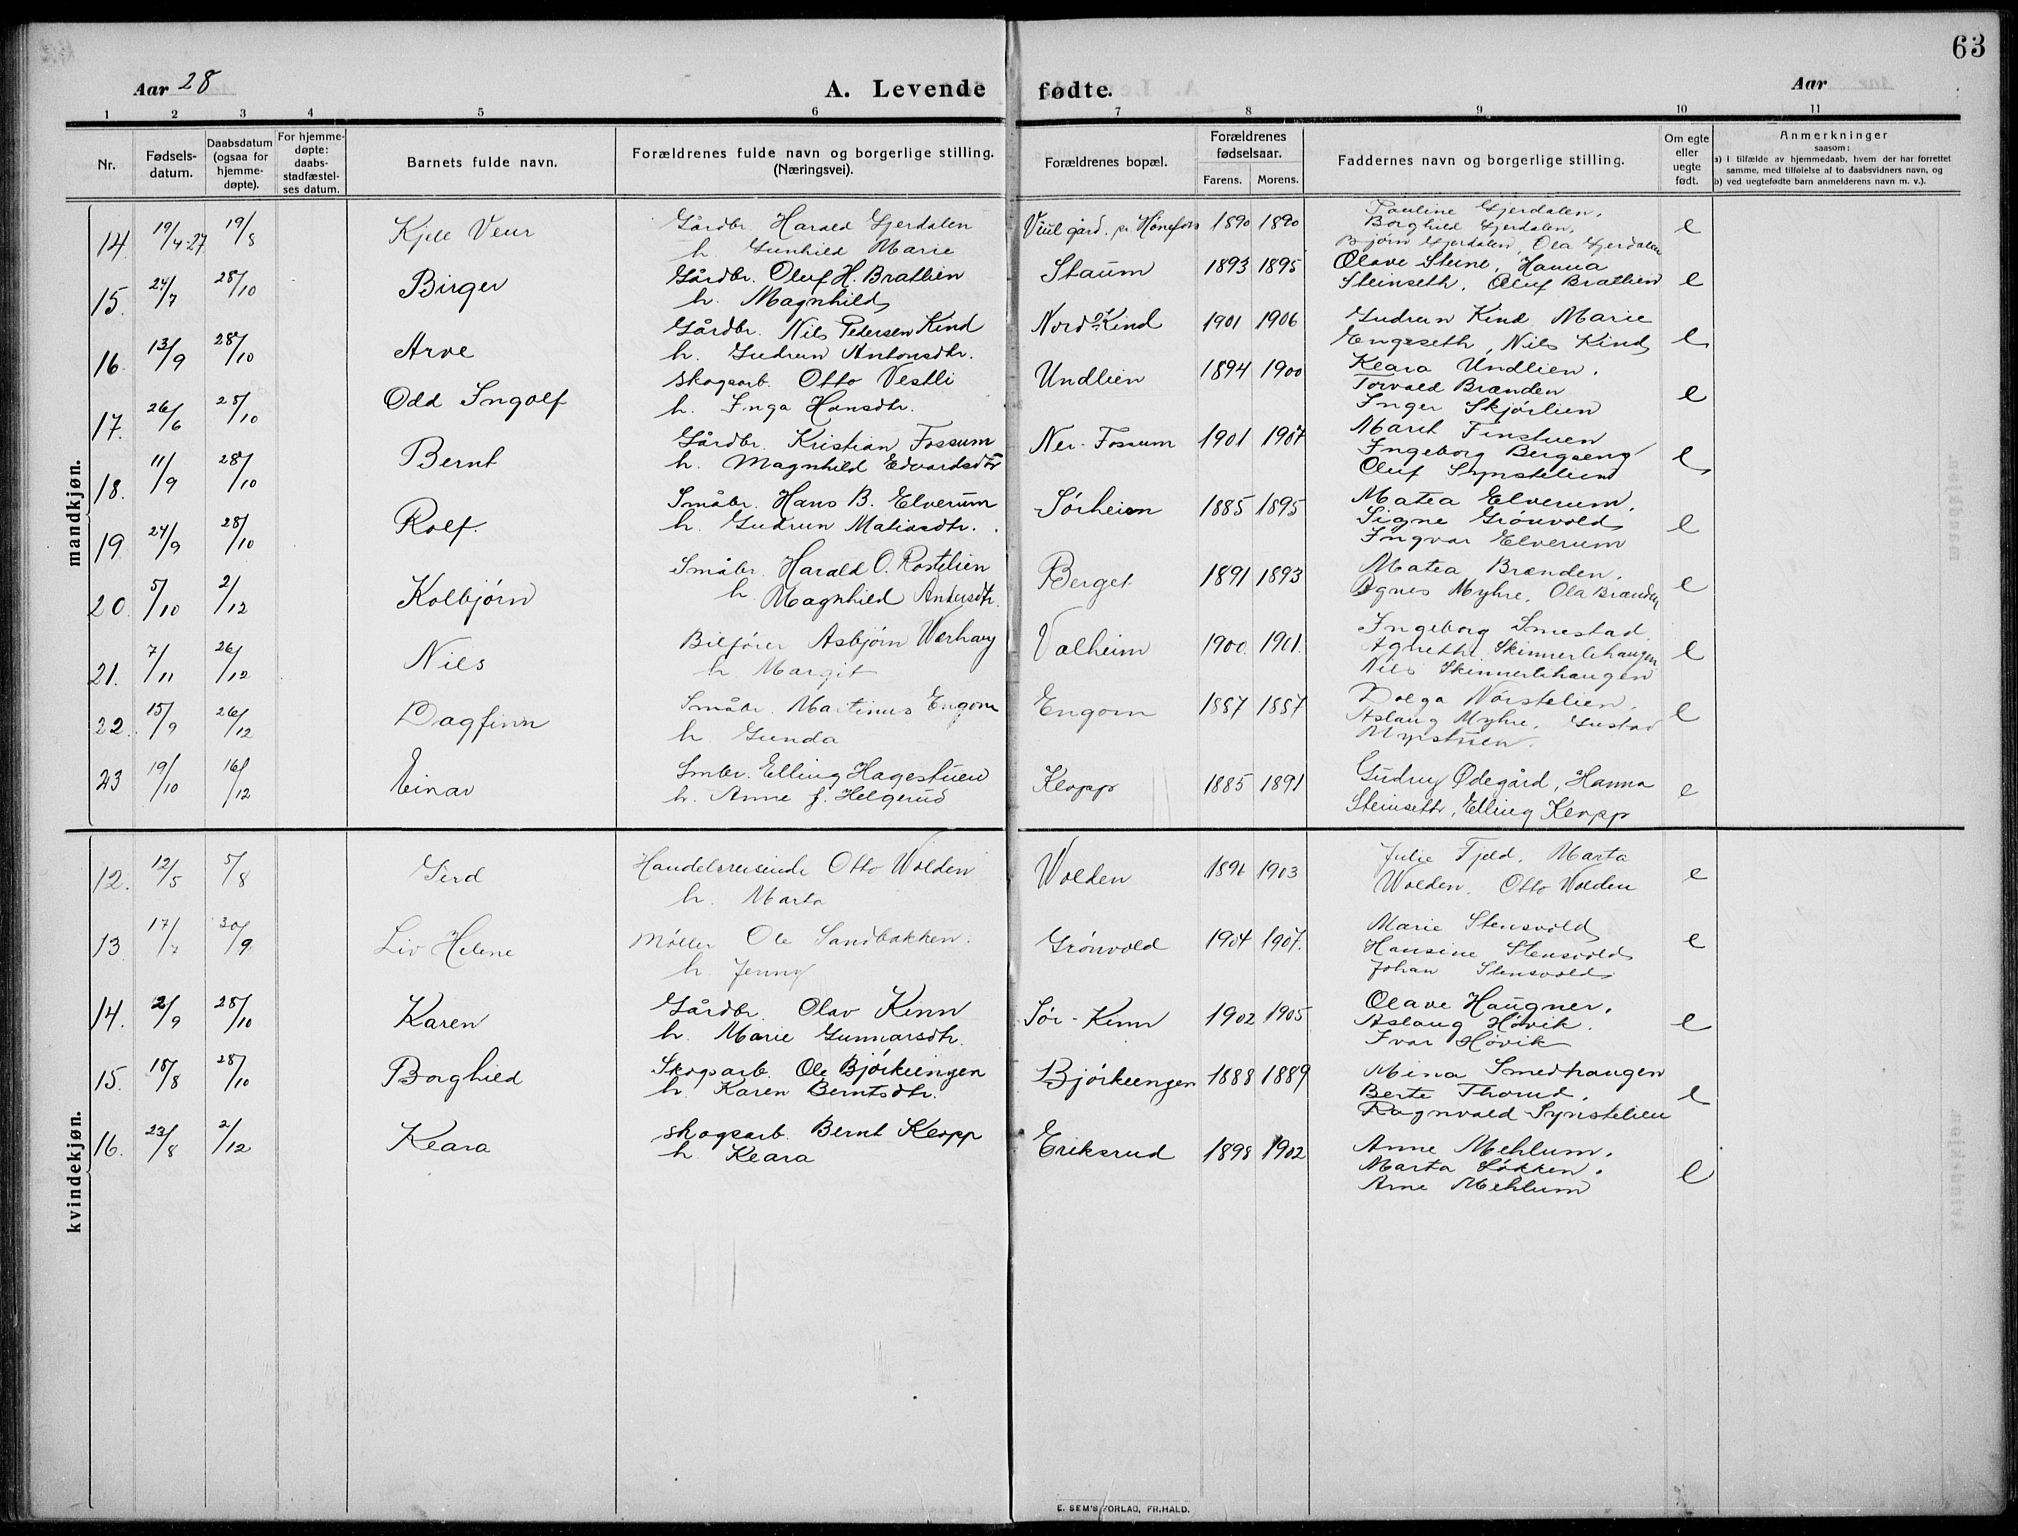 63
Aar 28
A. Levende fødte.
Aar
1 2 3 4 5 6 7 8 9 10 11
Nr.
Fødsels-
datum.
Daabsdatum
(ogsaa for
hjemme-
døpte).
For hjemme-
døpte:
daabs-
stadfæstel-
ses datum.
Barnets fulde navn.
Forældrenes fulde navn og borgerlige stilling.
(Næringsvei).
Forældrenes bopæl.
Forældrenes
fødselsaar.
Farens. Morens.
Faddernes navn og borgerlige stilling.
Om egte
eller
uegte
født.
Anmerkninger
saasom:
a) I tilfælde av hjemmedaab, hvem der har forrettet
samme, med tilføielse af to daabsvidners navn, og
b) ved uegtefødte barn anmelderens navn m. v.).
mandkjøn.
14. 19/4-27 19/8 Kjell Gårdbr. Harald Gjerdalen
h. Gunhild Marie
Viul gård. pr Hønefoss 1890 1890
Pauline Gjerdalen,
Borghild Gjerdalen,
Bjørn Gjerdalen, Ola Gjerdalen
e
15. 24/7 28/10 Birger Gårdbr. Oluf H. Bratlien
h. Magnhild
Staum 1893 1895
Olave Stene, Hanna
Steinseth, Oluf Bratlien
e
16. 13/9 28/10 Arve Gårdbr. Nils Pedersen Kind
h. Gudrun Antonsdtr.
Nord-Kind 1901 1906
Gudrun Kind Marie
Engeseth, Nils Kind
e
17. 26/6 28/10 Odd Ingolf Skogsarb. Otto Vestli
h. Inga Hansdtr.
Undlien 1894 1900
Klara Undlien,
Torvald Brænden
Inger Skjørlien
e
18. 11/9 28/10 Bernt Gårdbr. Kristian Fossum
h. Magnhild Edvardsdtr
Ner-Fossum 1901 1907
Marit Finstuen
Ingeborg Bergseng
Oluf Synstelien
e
19. 24/9 28/10 Rolf. Småbr. Hans B. Elverum
h. Gudrun Matiasdtr.
Sørheim 1885 1895
Matea Elverum,
Signe Grønvold
Ingvar Elverum
e
20. 5/10 2/12 Kolbjørn Småbr. Harald O. Rostelien
h. Magnhild Andersdtr.
Berget 1891 1893
Matea Brænden,
Agnes Myhre, Ola Brænden
e
21. 7/11 26/12 Nils Bilfører Asbjørn
h Margit
Valheim 1900. 1901.
Ingeborg Smestad
Agnethe Skinnerlihaugen
Nils Skinnerlihaugen
e
22. 15/9 26/12 Dagfinn Småbr. Martinus Engom
h Gunda
Engom 1887 1887
Dolga Nørstelien,
Aslaug Myhre, Gustav
Myrstuen.
e
23 19/10 16/12 Einar Smbr. Elling Hagestuen
h. Anne f. Helgerud
Klopp 1885 1891
Ødegård, Hanna
Steinseth, Elling Klopp
e
kvindekjøn.
12. 12/5 5/8 Gerd Handelsreisende Otto Wolden
h. Marta
Wolden 1896 1903
Julie Fjeld, Marta
Wolden, Otto Wolden
e
13 17/7 30/9 Liv Helene Møller Ole Sandbakken.
h. Jenny
Grønvold 1904 1907.
Marie Stensvold
Hansine Stensvold
Johan Stensvold
e
14. 2/9 28/10 Karen Gårdbr. Olav Kinn
h. Marie Gunnarsdtr.
Sør-Kinn 1902 1905
Olave Haugner,
Aslaug Høvik.
Ivar Høvik
e
15. 18/8 28/10 Borghild Skogsarb. Ole Bjørkeengen
h. Karen Berntsdtr.
Bjørkeengen 1888 1889
Mina Smedhaugen
Berte Thorud,
Ragnvald Synstelien
e
16. 23/8 2/12 Klara Skogsarb. Bernt Klopp
h. Klara
Eriksrud 1898 1902
Anne Mehlum,
Marta Løkken,
Arne Mehlum
e
E. SEM'S FORLAG, FR.HALD.